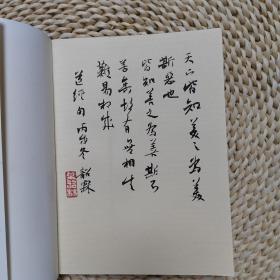 天下皆知美之为美
斯恶也
皆知善之为善斯不
善矣故有无相生
难易相成
道经句丙戌冬